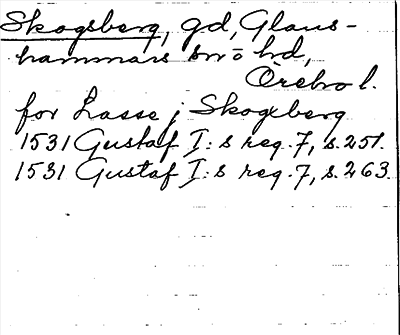 Skogsberg, gd, Glans-
hammars sn o hd,
Örebro l.
for Lasse j Skogsberg
1531 Gustaf I:s reg. 7, s. 251.
1531 Gustaf I:s reg. 7, s. 263.